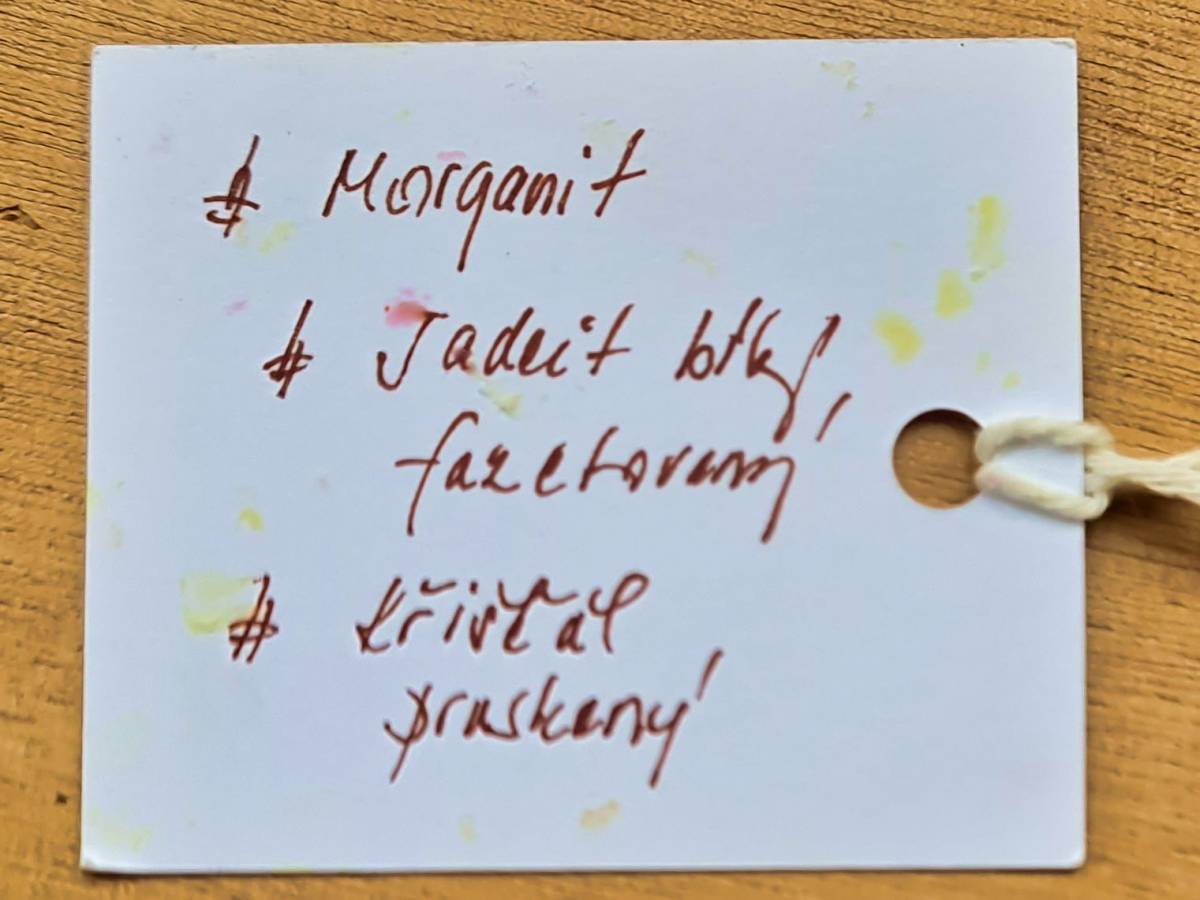 # Morganit
# Jadeit bílý,
fazetovaný
# křišťál
praskaný